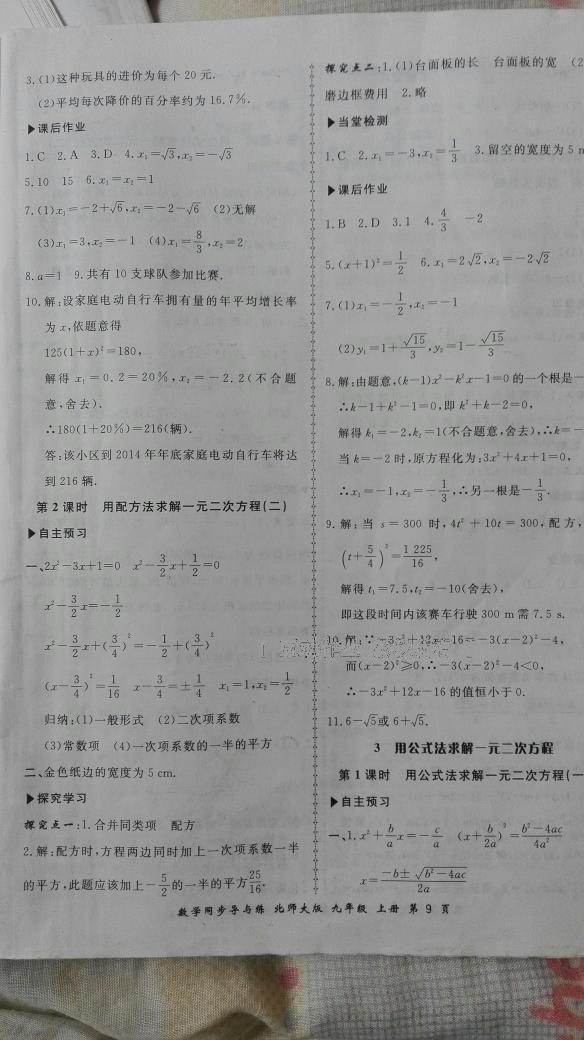 3.(1)这种玩具的进价为每个 20 元.
(2)平均每次降价的百分率约为 16.7%.
▶课后作业
1.C 2.A 3.D 4.x₁=√3,x₂=-√3
5.10 15 6.x₁=x₂=1
7.(1)x₁=-2+√6,x₂=-2-√6 (2)无解
(3)x₁=3,x₂=-1 (4)x₁=8/3,x₂=2
8.a=1 9.共有 10 支球队参加比赛.
10.解:设家庭电动自行车拥有量的年平均增长率
为 x,依题意得
125(1+x)²=180,
解得 x₁=0.2=20%,x₂=-2.2(不合题
意,舍去).
∴180(1+20%)=216(辆).
答:该小区到 2014 年年底家庭电动自行车将达
到 216 辆.
第 2 课时 用配方法求解一元二次方程(二)
▶自主预习
一、2x²-3x+1=0 x²-3/2x+1/2=0
x²-3/2x=-1/2
x²-3/2x+(3/4)²=-1/2+(3/4)²
(x-3/4)²=1/16 x-3/4=±1/4 x₁=1,x₂=1/2
归纳:(1)一般形式 (2)二次项系数
(3)常数项 (4)一次项系数的一半的平方
二、金色纸边的宽度为 5 cm.
▶探究学习
探究点一:1.合并同类项 配方
2.解:配方时,方程两边同时加上一次项系数一半
的平方,此题应该加上-5/2的一半的平方25/16.
探究点二:1.(1)台面板的长 台面板的宽 (2
磨边框费用 2.略
▶当堂检测
1.C 2.x₁=-3,x₂=1/3 3.留空的宽度为 5 m
▶课后作业
1.B 2.D 3.1 4.4/3 -2
5.(x+1)²=1/2 6.x₁=2√2,x₂=-2√2
7.(1)x₁=-1/2,x₂=-1
(2)y₁=1+√15/3,y₂=1-√15/3
8.解:由题意,(k-1)x²-k²x-1=0 的一个根是-
∴k-1+k²-1=0,即 k²+k-2=0,
解得 k₁=-2,k₂=1(不合题意,舍去),∴k=-
当 k=-2 时,原方程化为:3x²+4x+1=0,
∴x₁=-1,x₂=-1/3,∴另一根是-1/3.
9.解:当 s=300 时,4t²+10t=300,配方,
(t+5/4)²=1 225/16,
解得 t₁=7.5,t₂=-10(舍去),
即这段时间内该赛车行驶 300 m 需 7.5 s.
10.解:∵-3x²+12x-16=-3(x-2)²-4,
而(x-2)²≥0,∴-3(x-2)²-4<0,
∴-3x²+12x-16 的值恒小于 0.
11.6-√5或 6+√5.
3 用公式法求解一元二次方程
第 1 课时 用公式法求解一元二次方程(一
▶自主预习
一、1.x²+b/a x=-c/a (x+b/2a)²=b²-4ac/4a²
x=-b±√b²-4ac/2a
数学同步导与练 北师大版 九年级 上册 第 9 页